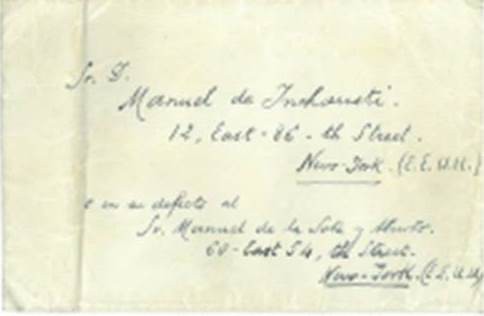 Sr. D.
Manuel de Inchausti.
12, East-86-th Street.
New-York. (E.E.U.U.)
o en su defecto al
Sr. Manuel de la Sota y Aburto.
60-East 54, th Street.
New-York. (E.E.U.U.)